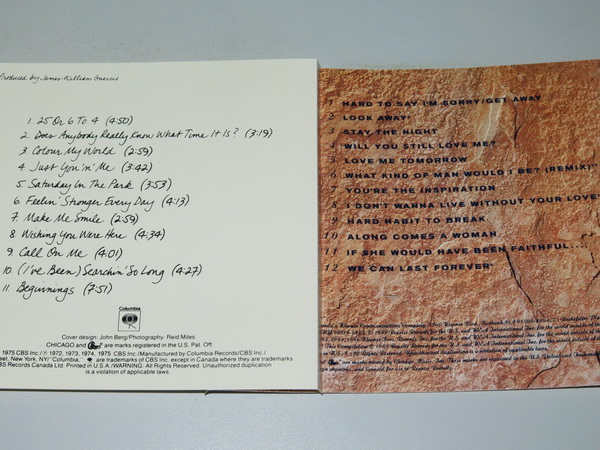 Produced by James William Guercio
1. 25 Or 6 To 4 (4:50)
2. Does Anybody Really Know What Time It Is? (3:19)
3. Colour My World (2:59)
4. Just You 'n' Me (3:42)
5. Saturday In The Park (3:53)
6. Feelin' Stronger Every Day (4:13)
7. Make Me Smile (2:59)
8. Wishing You Were Here (4:34)
9. Call On Me (4:01)
10. (I've Been) Searchin' So Long (4:27)
11. Beginnings (7:51)
Columbia
Cover design: John Berg/Photography: Reid Miles
CHICAGO and Chicago are marks registered in the U.S. Pat. Off.
1975 CBS Inc./℗ 1972, 1973, 1974, 1975 CBS Inc./Manufactured by Columbia Records/CBS Inc./
Street, New York, NY/"Columbia," are trademarks of CBS Inc. except in Canada where they are trademarks
CBS Records Canada Ltd. Printed in U.S.A./WARNING: All Rights Reserved. Unauthorized duplication
is a violation of applicable laws.
1 HARD TO SAY I'M SORRY/GET AWAY
2 LOOK AWAY*
3 STAY THE NIGHT
4 WILL YOU STILL LOVE ME?
5 LOVE ME TOMORROW
6 WHAT KIND OF MAN WOULD I BE? (REMIX)**
7 YOU'RE THE INSPIRATION
8 I DON'T WANNA LIVE WITHOUT YOUR LOVE*
9 HARD HABIT TO BREAK
10 ALONG COMES A WOMAN
11 IF SHE WOULD HAVE BEEN FAITHFUL....
12 WE CAN LAST FOREVER*